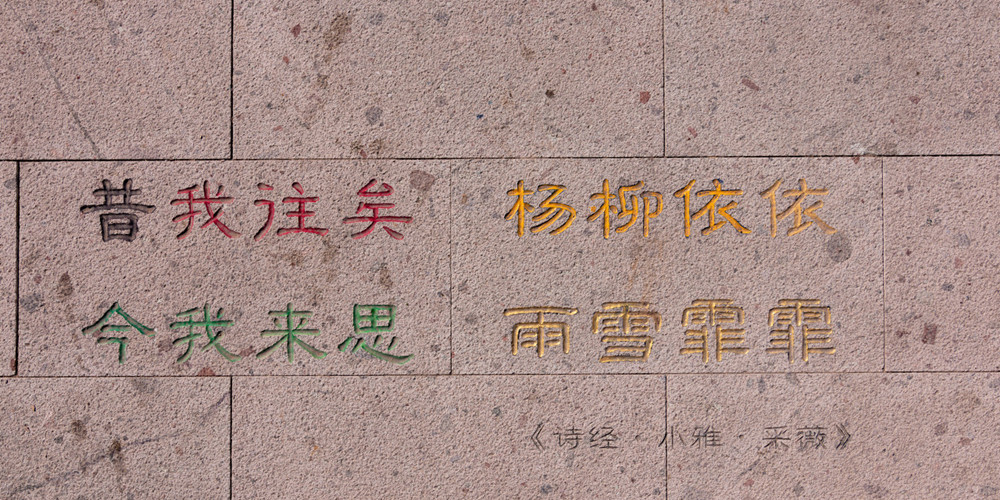 昔我往矣 杨柳依依
今我来思 雨雪霏霏
《诗经·小雅·采薇》